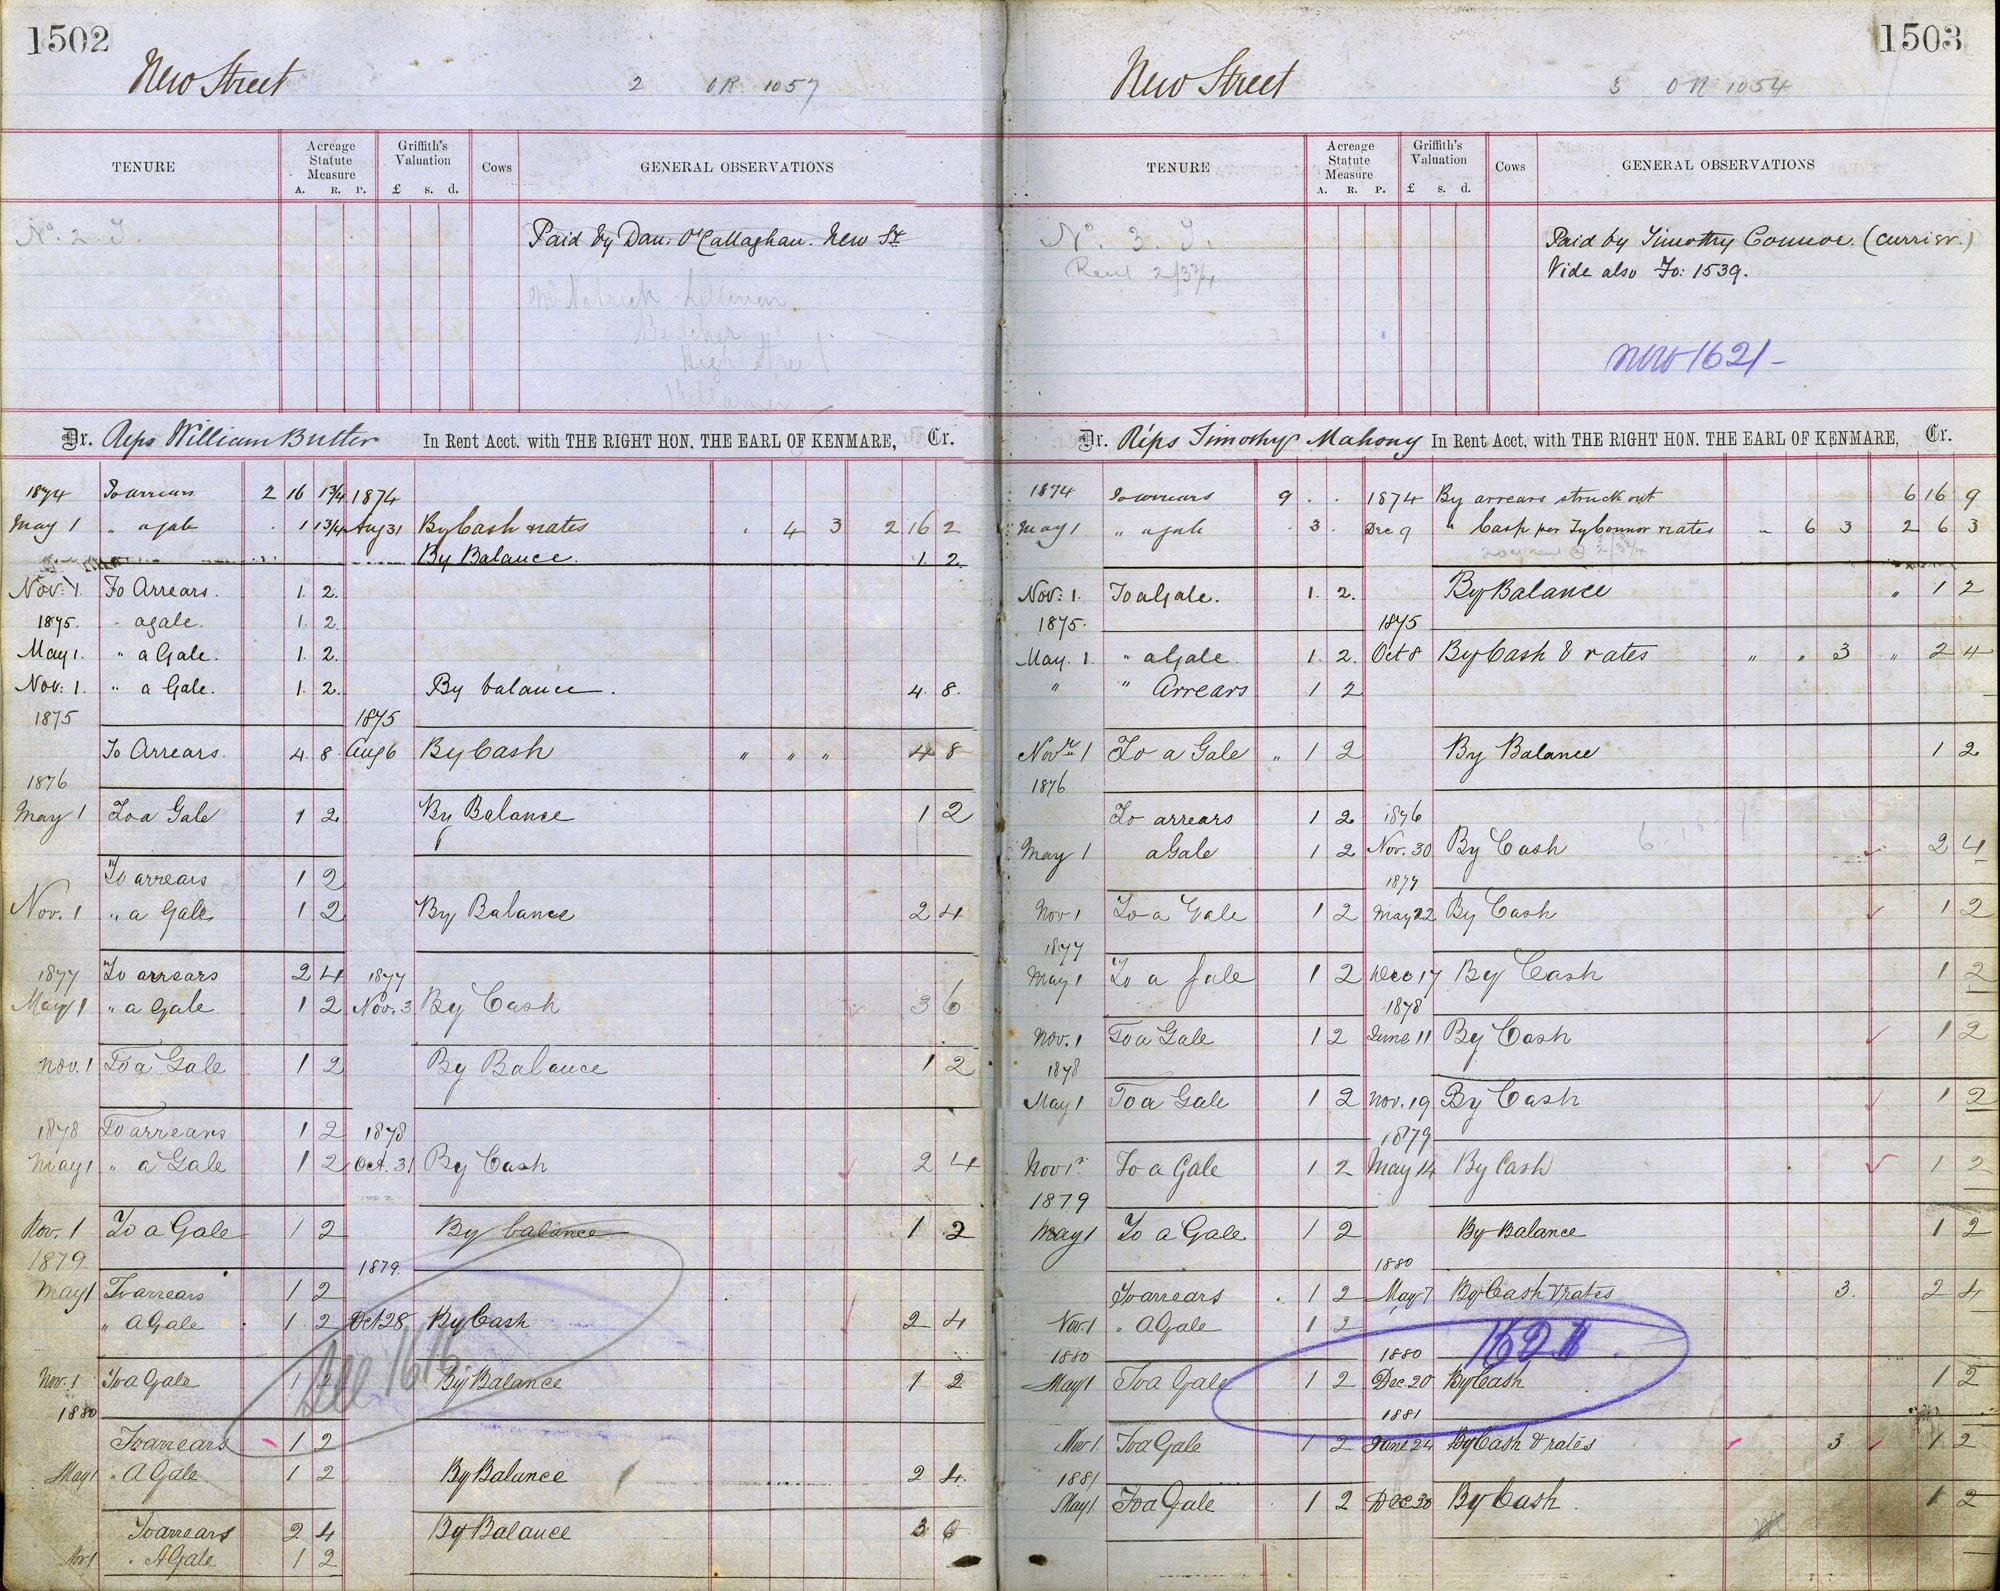 1502
New Street
2 OR 1057
TENURE
Acreage Statute Measure
A. R. P.
Griffith's Valuation
£ s. d.
Cows
GENERAL OBSERVATIONS
No. 2. T.
Paid by Dan. O'Callaghan. New St
Butcher
High Street
Killarney
Dr. Reps William Butler In Rent Acct. with THE RIGHT HON. THE EARL OF KENMARE, Cr.
1874 To arrears 2 16 1 3/4 1874
May 1 " a gale . 1 1 3/4 Aug 31 By Cash & rates . 4 3 2 16 2
By Balance. 1. 2.
Nov: 1. To Arrears. 1. 2.
1875. " a gale. 1. 2.
May 1. " a Gale. 1. 2.
Nov: 1. " a Gale. 1. 2. By balance. 4. 8.
1875 1875
To Arrears. 4. 8. Aug 6 By Cash " " " 4 8
1876
May 1 To a Gale 1 2 By Balance 1 2
To arrears 1 2
Nov. 1 " a Gale 1 2 By Balance 2 4
1877 To arrears 2 4 1877
May 1 " a Gale 1 2 Nov. 3 By Cash 3 6
Nov. 1 To a Gale 1 2 By Balance 1 2
1878 To arrears 1 2 1878
May 1 " a Gale 1 2 Oct. 31 By Cash 2 4
Nov. 1 To a Gale 1 2 By balance 1 2
1879 1879.
May 1 To arrears 1 2
" A Gale 1 2 Oct 28 By Cash 2 4
See 1616
Nov. 1 To a Gale 1 2 By Balance 1 2
1880
To arrears 1 2
May 1 " A Gale 1 2 By Balance 2 4.
To arrears 2 4 By Balance 3 6
Nov 1 " A Gale 1 2
1503
New Street
3 OR 1054
TENURE
Acreage Statute Measure
A. R. P.
Griffith's Valuation
£ s. d.
Cows
GENERAL OBSERVATIONS
No. 3. T.
Rent 2/3 3/4
Paid by Timothy Connor. (currier.)
Vide also Fo: 1539.
now 1621-
Dr. Reps Timothy Mahony In Rent Acct. with THE RIGHT HON. THE EARL OF KENMARE, Cr.
1874 To arrears 9 . . 1874 By arrears struck out 6 16 9
May 1 " a gale . 3 . Dec 9 " Cash per Ty Connor & rates - 6 3 2 6 3
Nov: 1. To a Gale. 1. 2. By Balance " 1 2
1875. 1875
May. 1. " a Gale. 1. 2. Oct 8 By Cash & rates " " 3 " 2 4
" " Arrears 1 2
Novr 1 To a Gale " 1 2 By Balance 1 2
1876
To arrears 1 2 1876
May 1 a Gale 1 2 Nov. 30 By Cash 2 4
6. 16. 9
1877
Nov 1 To a Gale 1 2 May 22 By Cash 1 2
1877
May 1 To a Gale 1 2 Dec 17 By Cash 1 2
1878
Nov. 1 To a Gale 1 2 June 11 By Cash 1 2
1878
May 1 To a Gale 1 2 Nov. 19 By Cash 1 2
1879
Nov 1r To a Gale 1 2 May 14 By Cash 1 2
1879
May 1 To a Gale 1 2 By Balance 1 2
1880
To arrears 1 2 May 7 By Cash & rates 3. 2 4
Nov. 1 " A Gale 1 2
1621
1880 1880
May 1 To a Gale 1 2 Dec. 20 By Cash 1 2
1881
Nov 1. To a Gale 1 2 June 24 By Cash & rates 3 1 2
1881
May 1. To a Gale 1 2 Dec 30 By Cash. 1 2